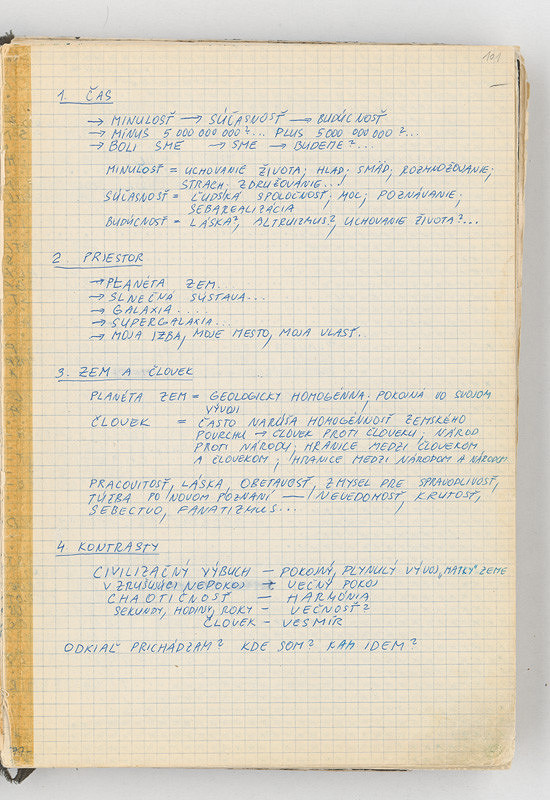 101
1. ČAS
→ MINULOSŤ → SÚČASNOSŤ → BUDÚCNOSŤ
→ MÍNUS 5 000 000 000?... PLUS 5000 000 000?...
→ BOLI SME → SME → BUDEME?...
MINULOSŤ = UCHOVANIE ŽIVOTA; HLAD; SMÄD, ROZMNOŽOVANIE;
STRACH; ZDRUŽOVANIE...
SÚČASNOSŤ = ĽUDSKÁ SPOLOČNOSŤ; MOC; POZNÁVANIE;
SEBAREALIZÁCIA
BUDÚCNOSŤ = LÁSKA?, ALTRUIZMUS? UCHOVANIE ŽIVOTA?...
2 PRIESTOR
→ PLANÉTA ZEM..
→ SLNEČNÁ SÚSTAVA...
→ GALAXIA ....
→ SUPERGALAXIA...
→ MOJA IZBA, MOJE MESTO, MOJA VLASŤ.
3. ZEM A ČLOVEK
PLANÉTA ZEM = GEOLOGICKY HOMOGÉNNA; POKOJNÁ VO SVOJOM
VÝVOJI
ČLOVEK = ČASTO NARÚŠA HOMOGÉNNOSŤ ZEMSKÉHO
POVRCHU → ČLOVEK PROTI ČLOVEKU, NÁROD
PROTI NÁRODU; HRANICE MEDZI ČLOVEKOM
A ČLOVEKOM; HRANICE MEDZI NÁRODOM A NÁRODOM
PRACOVITOSŤ, LÁSKA, OBETAVOSŤ, ZMYSEL PRE SPRAVODLIVOSŤ,
TÚŽBA PO NOVOM POZNANÍ — NEVEDOMOSŤ, KRUTOSŤ,
SEBECTVO, FANATIZMUS...
4 KONTRASTY
CIVILIZAČNÝ VÝBUCH — POKOJNÝ, PLYNULÝ VÝVOJ „MATKY" ZEME
VZRUŠUJÚCI NEPOKOJ — VEČNÝ POKOJ
CHAOTIČNOSŤ — HARMÓNIA
SEKUNDY, HODINY, ROKY — VEČNOSŤ?
ČLOVEK — VESMÍR
ODKIAĽ PRICHÁDZAM? KDE SOM? KAM IDEM?